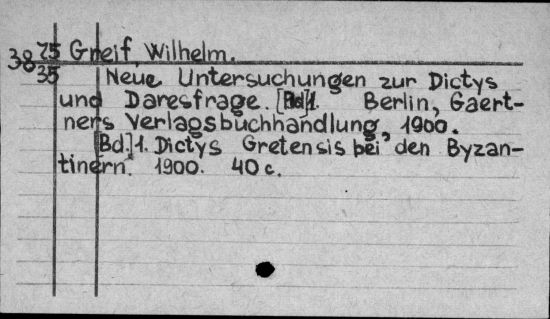 38 25/35 Greif, Wilhelm.
Neue Untersuchungen zur Dictys
und Daresfrage. [Bd]1. Berlin, Gaert-
ners Verlagsbuchhandlung, 1900.
[Bd.]1. Dictys Gretensis bei den Byzan-
tinern. 1900. 40 c.